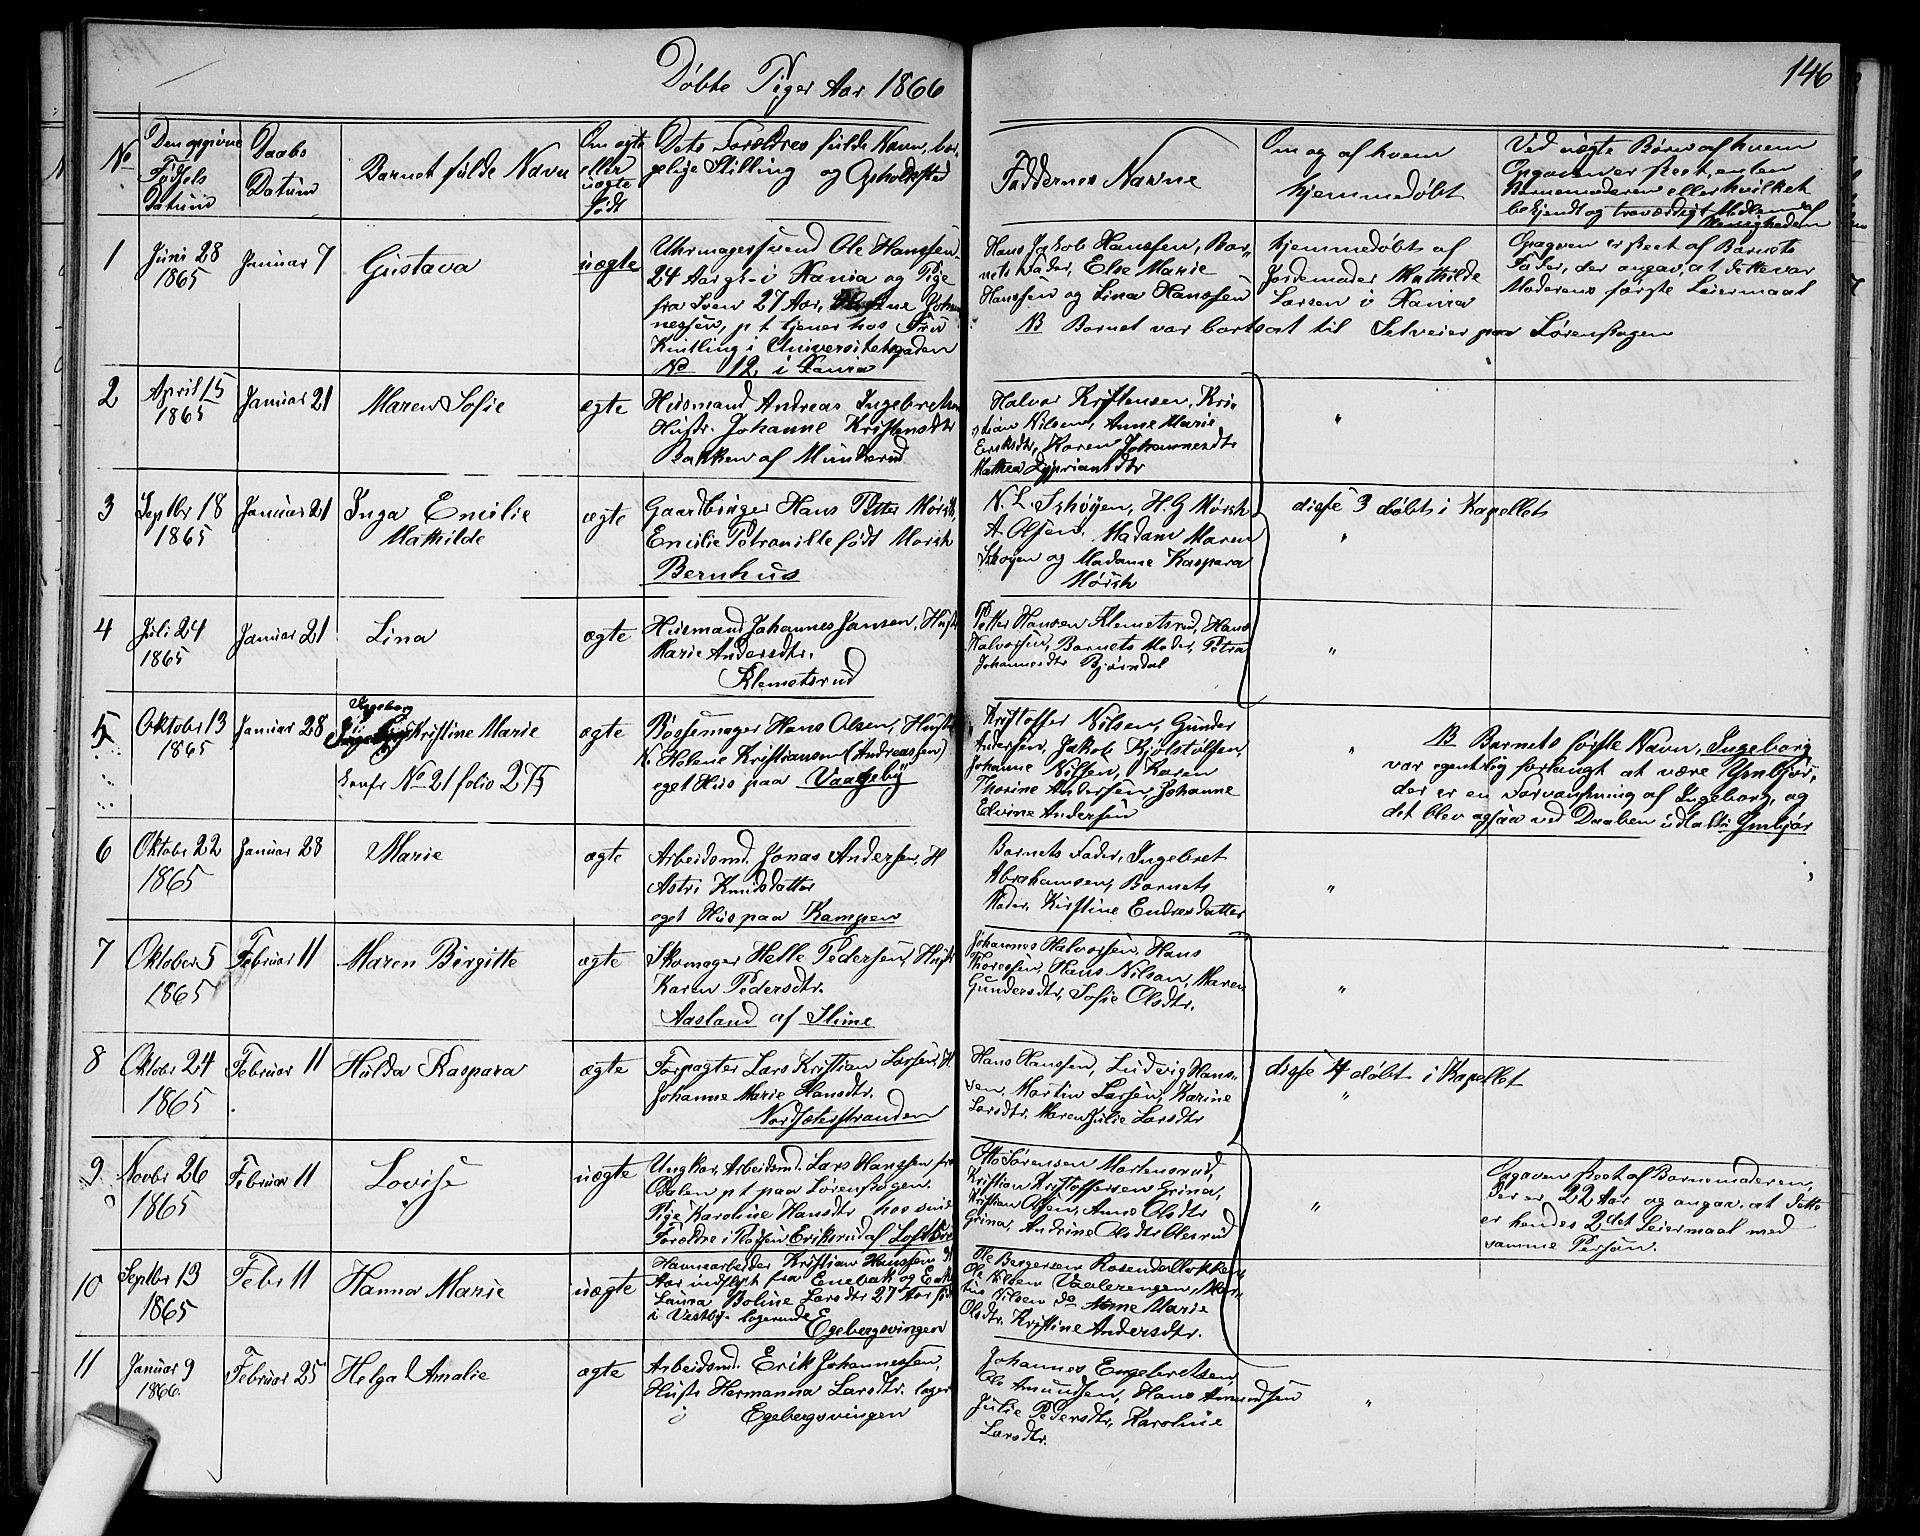 Døbte Piger Aar 1866
146
No
Den opgivne
Fødsels
Datum
Daabs
Datum
Barnets fulde Navn
Om ægte
eller
uægte
født
Dets Forældres fulde Navn, bor-
gelige Stilling og Opholdssted
Faddernes Navne
Om og af hvem
hjemmedøbt
Ved uægte Børn af hvem
Opgaven er skeet, enten
Barnemoderen eller hvilket
bekjendt og troværdigt Medlem af
Menigheden
1
Juni 28
1865
Januar 7
Gustava
uægte
Uhrmagersvend Ole Hanssen
24 Aar gl. i Xania og Pige
fra Sven 27 Aar, Johan-
nessen, p t tjener hos Fru
Knitling i Universitetsgaden
No 12 i Xania
Hans Jakob Hanssen, Bar-
nets Fader, Else Marie
Hanssen og Lina Hanssen
hjemmedøbt af
Jordemoder Mathilde
Larsen i Xania
Opgaven er skeet af Barnets
Fader, der angav, at dette var
Moderens første Leiermaal
NB Barnet var bortsat til Selveier paa Lørenskogen
2
April 15
1865
Januar 21
Maren Sofie
ægte
Husmand Andreas Ingebretsen
Hustr. Johanne Kristensdtr
Bakken af Munkerud
Halvor Kristensen, Kri-
stian Nilsen, Anne Marie
Eriksdtr, Karen Johannesdtr
Mathea Cypriansdtr
"
3
Septbr 18
1865
Januar 21
Inga Emilie
Mathilde
ægte
Gaardbruger Hans Petter Mørch,
Emilie Petronille født Mørch
Bernhus
N. L. Schøyen, H. G Mørch
A. Olsen, Madam Maren
Schøyen og Madame Kaspara
Mørch
disse 3 døbt i Kapellet
"
4
Juli 24
1865
Januar 21
Lina
ægte
Husmand Johannes Jansen, Hust
Marie Andersdtr.
Klemetsrud
Petter Hansen Klemetsrud, Hans
Halvorsen, Barnets Moder, Petra
Johannesdtr Bjørndal
"
5
Oktober 13
1865
Januar 28
Ingeborg
Kristine Marie
Confr No 21 folio 275
ægte
Bøssemager Hans Olsen, Hustr
N. Helene Kristiansen (Andreassen)
eget Hus paa Vaalgeby
Kristoffer Nilsen, Gunder
Andersen, Jakob Kjølstølsen,
Johanne Nilsen, Karen
Thorine Andersen, Johanne
Edvine Andersen
"
NB Barnets første Navn, Ingeborg
var egentlig forlangt at være Ymbjør,
der er en Forvanskning af Ingeborg, og
det blev ogsaa ved Daaben udtalt Ymbjør
6
Oktobr 22
1865
Januar 28
Marie
ægte
Arbeidsmd. Jonas Andersen, H
Astri Knudsdatter
eget Hus paa Kampen
Barnets Fader, Ingebret
Abrahamsen, Barnets
Moder, Kirstine Endresdatter
"
7
Oktober 5
1865
Februar 11
Maren Birgitte
ægte
Skomager Helle Pedersen, Hustr
Karen Pedersdtr.
Aasland af Slime
Johannes Halvorsen, Hans
Thoresen, Hans Nilsen, Maren
Gundersdtr, Sofie Olsdtr.
"
8
Oktobr 24
1865
Februar 11
Hulda Kaspara
ægte
Forpagter Lars Kristian Larsen, H
Johanne Marie Hansdtr.
Nordsæterstranden
Hans Hanssen, Ludvig Hans-
sen, Martin Larsen, Karine
Larsdtr. Maren Julie Larsdtr
disse 4 døbt i Kapellet
"
9
Novbr 26
1865
Februar 11
Lovise
uægte
Ungkar, Arbeidsmd. Lars Hanssen fra
Dalen p t paa Lørenskogen.
Pige Karoline Hansdtr hos sine
Forældre i Pladsen Eriksrud af Loftsrud
Otto Sørensen Mortensrud,
Kristian Kristoffersen Grina,
Kristian Olsen, Anne Olsdtr
Grina, Andrine Olsdtr Olesrud
"
Opgaven skeet af Barnemoderen,
der er 22 Aar og angav, at dette
er hendes 2det Leiermaal med
samme Person.
10
Septbr 13
1865
Febr 11
Hanna Marie
uægte
Havnearbeider Kristian Hanssen
Aar indflyt fra Enebak og Enke
Laura Boline Larsdtr 27 Aar født
i Vestby. logerende
Egebergsvingen
Ole Bergersen Rosendalløkken,
Ole Nilsen Vaalerengen, Mar-
tius Nilsen do Anne Marie
Olsdtr. Kristine Andersdtr.
11
Januar 9
1866
Februar 25
Helga Amalie
ægte
Arbeidsmd. Erik Johannessen,
Hustr Hermanna Larsdtr. loger
Egebergsvingen
Johannes Engebretsen,
Ole Amundsen, Hans Amundsen
Julie Pedersdtr, Karoline
Larsdtr.
"